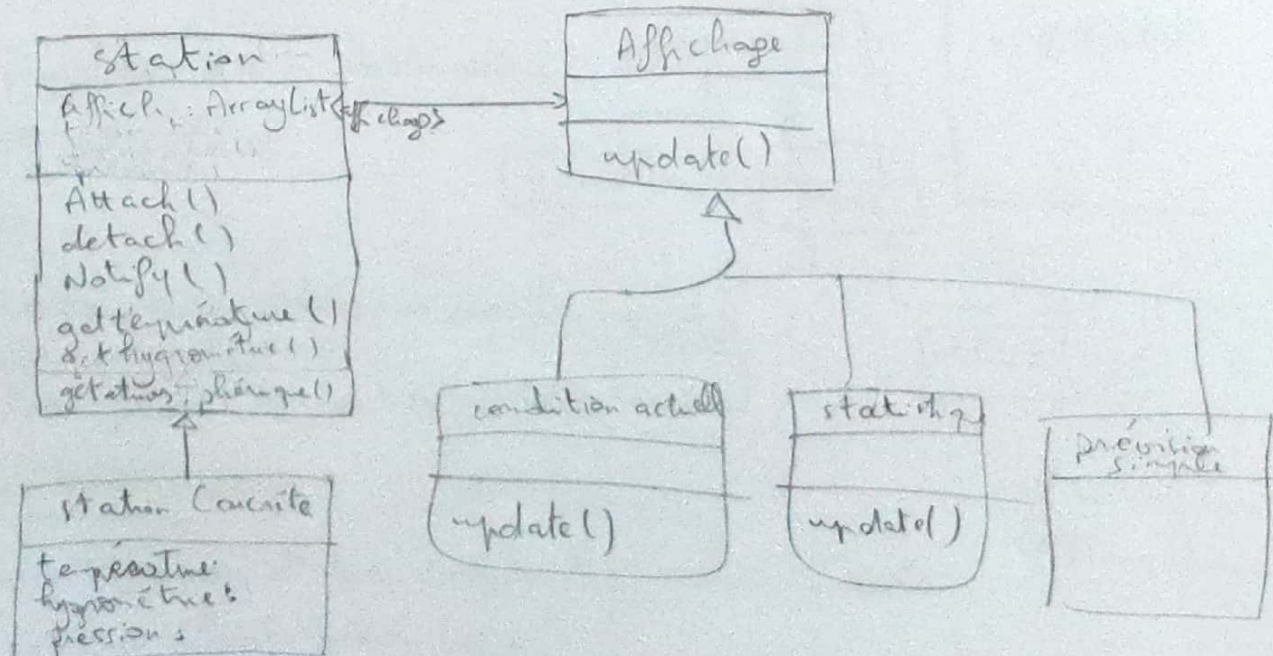 station
Affich : ArrayList<affichage>
Attach()
detach()
Notify()
gettempérature()
get hygrométrie()
getatmosphérique()
station Concrète
température:
hygrométrie:
pression:
Affichage
update()
condition actuell
update()
statistiq
update()
prévision
simple